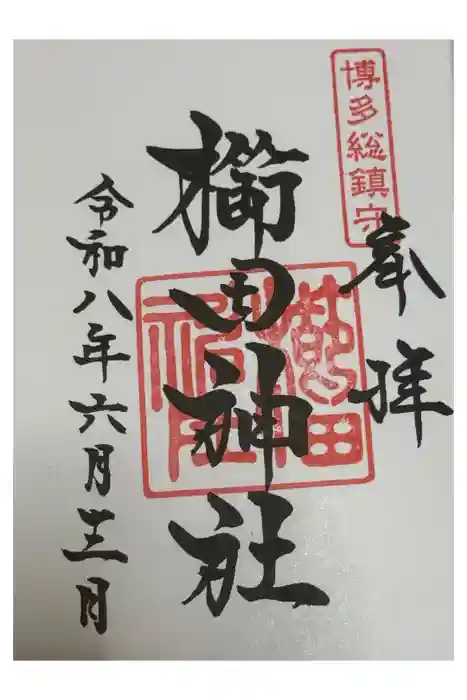 博多総鎮守
奉拝
櫛田神社
令和八年六月十三日